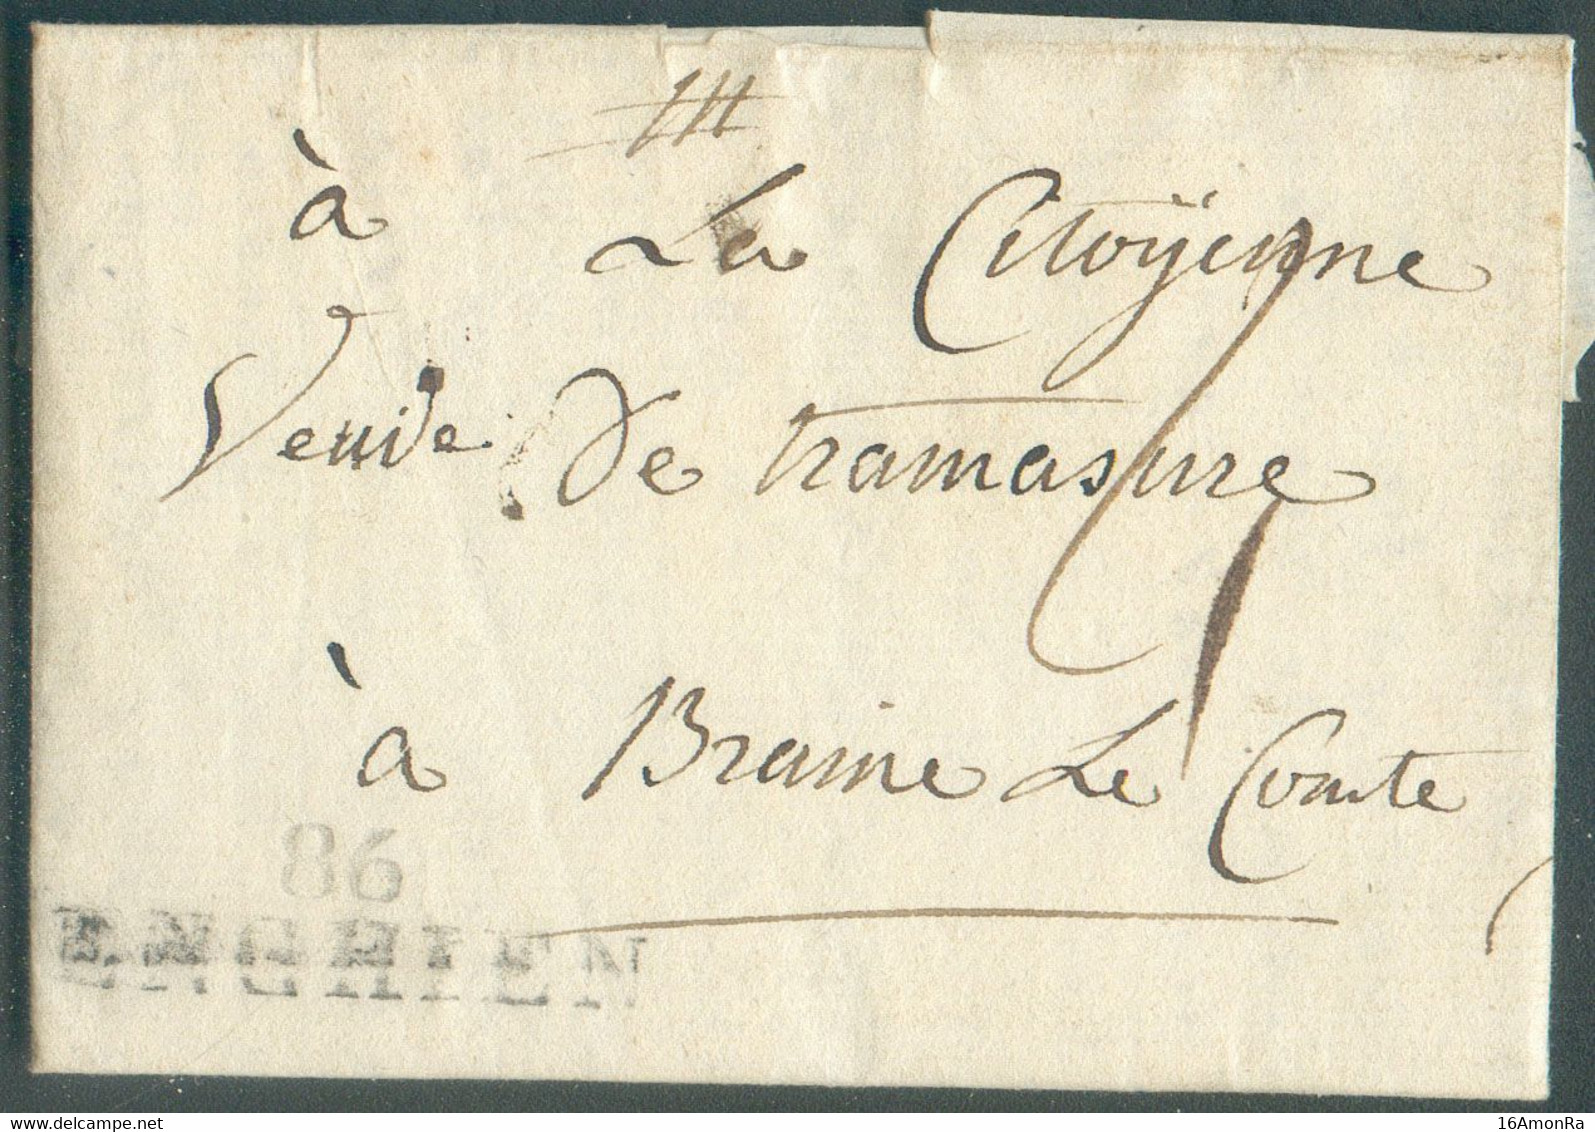 à La Citoÿenne
Veuve De tramasure
à Braine Le Comte
86
ENGHIEN
16AmonRa